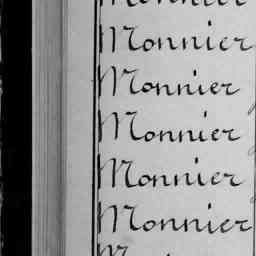 Monnier
Monnier
Monnier
Monnier
Monnier
Monnier